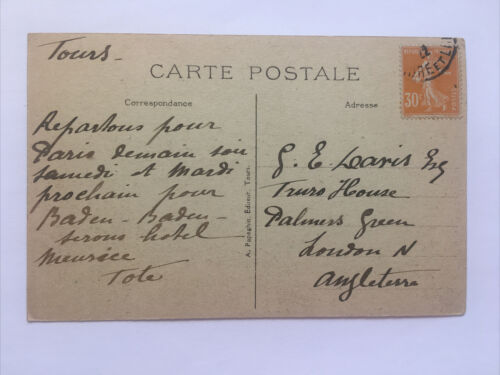 Tours -
CARTE POSTALE
Correspondance
Repartons pour
Paris demain soir
samedi et Mardi
prochain pour
Baden - Baden -
serons hotel
Meurice
Tote
A. Papeghin, Editeur, Tours.
Adresse
30c
ET L
G. E. Davis Esq
Truro House
Palmers Green
London N
Angleterre